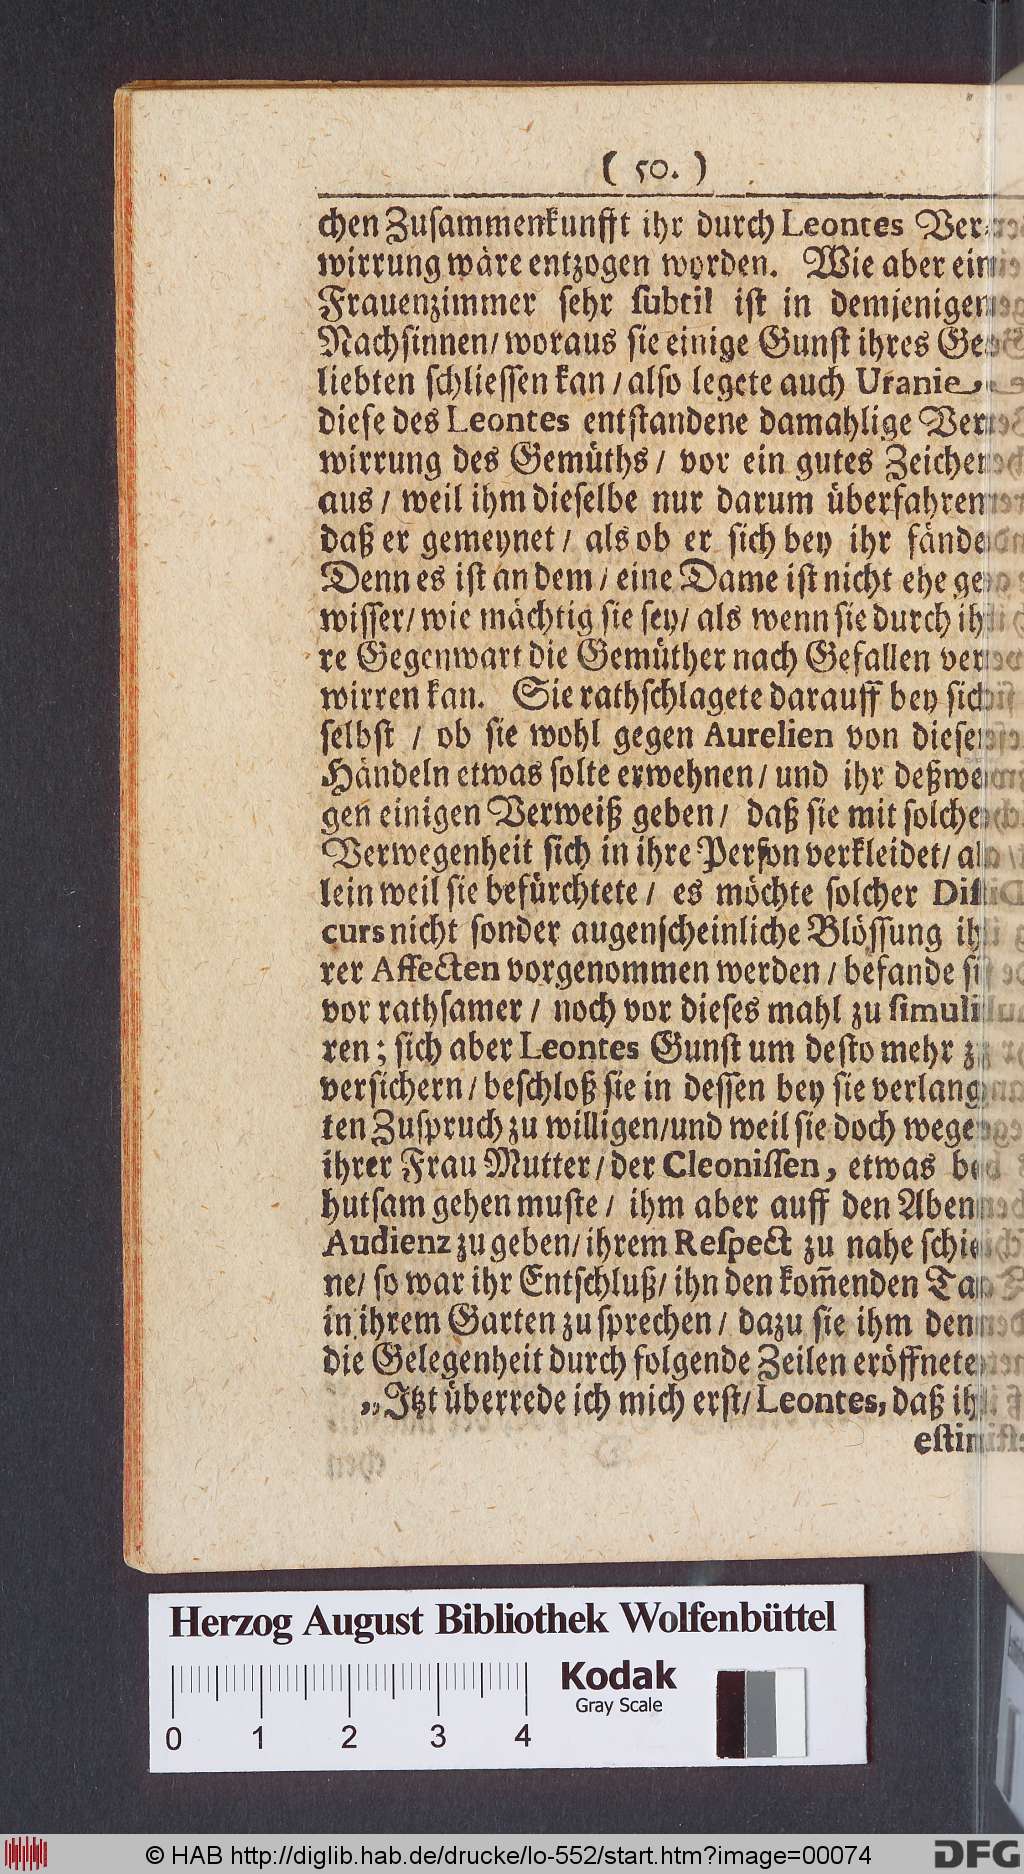 ( 50. )
chen Zuſammenkunfft ihr durch Leontes Ver-
wirrung wäre entzogen worden. Wie aber ein
Frauenzimmer ſehr ſubtil iſt in demjenigen
Nachſinnen/ woraus ſie einige Gunſt ihres Ge-
liebten ſchlieſſen kan / alſo legete auch Uranie
dieſe des Leontes entſtandene damahlige Ver-
wirrung des Gemüths / vor ein gutes Zeichen
aus / weil ihm dieſelbe nur darum überfahren
daß er gemeynet / als ob er ſich bey ihr fände
Denn es iſt an dem / eine Dame iſt nicht ehe ge-
wiſſer/ wie mächtig ſie ſey/ als wenn ſie durch ih-
re Gegenwart die Gemüther nach Gefallen ver-
wirren kan. Sie rathſchlagete darauff bey ſich
ſelbſt / ob ſie wohl gegen Aurelien von dieſen
Händeln etwas ſolte erwehnen / und ihr deßwe-
gen einigen Verweiß geben / daß ſie mit ſolcher
Verwegenheit ſich in ihre Perſon verkleidet/ al-
lein weil ſie befürchtete / es möchte ſolcher Diſ-
curs nicht ſonder augenſcheinliche Blöſſung ih-
rer Affecten vorgenommen werden / befande ſie
vor rathſamer / noch vor dieſes mahl zu ſimuli-
ren ; ſich aber Leontes Gunſt um deſto mehr zu
verſichern / beſchloß ſie in deſſen bey ſie verlang-
ten Zuſpruch zu willigen/und weil ſie doch wegen
ihrer Frau Mutter / der Cleoniſſen, etwas be-
hutſam gehen muſte / ihm aber auff den Abend
Audienz zu geben/ ihrem Reſpect zu nahe ſchie-
ne/ ſo war ihr Entſchluß/ ihn den kom̃enden Tag
in ihrem Garten zu ſprechen / dazu ſie ihm denn
die Gelegenheit durch folgende Zeilen eröffnete
„Jtzt überrede ich mich erſt/ Leontes, daß ihr
eſtim
Herzog August Bibliothek Wolfenbüttel
Kodak
Gray Scale
0 1 2 3 4
© HAB http://diglib.hab.de/drucke/lo-552/start.htm?image=00074
DFG